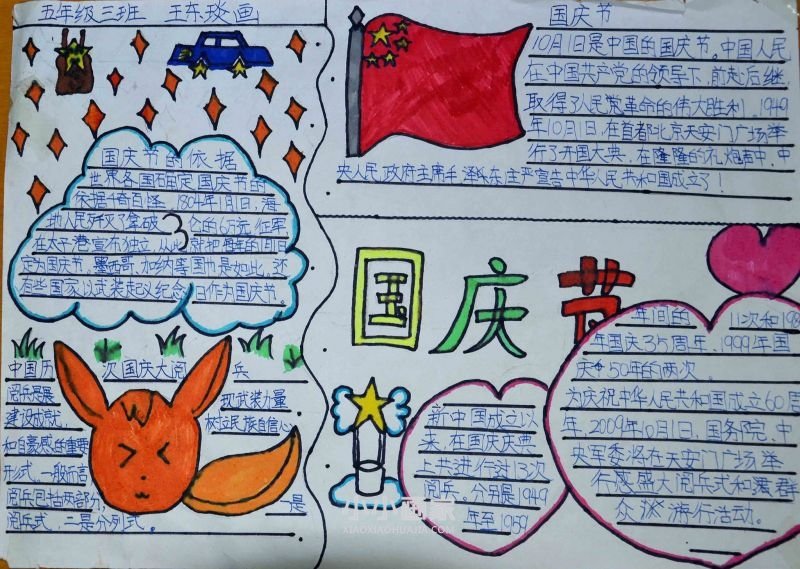 五年级三班 王东琰画
国庆节的依据
世界各国确定国庆节的
依据千奇百怪。1804年1月1日,海
地人民歼灭了拿破 仑的6万远征军
在太子港宣布独立,从此就把每年的1月1日
定为国庆节,墨西哥、加纳等国也是如此,还
有些国家以武装起义纪念日作为国庆节。
中国历 次国庆大阅 兵
阅兵是展 现武装力量
建设成就, 树立民族自信心
和自豪感的重要
形式,一般而言
阅兵包括两部分, 一是
阅兵式,二是分列式。
国庆节
10月1日是中国的国庆节。中国人民
在中国共产党的领导下,前赴后继,
取得了人民革命的伟大胜利。1949
年10月1日,在首都北京天安门广场举
行了开国大典,在隆隆的礼炮声中,中
央人民政府主席毛泽东庄严宣告中华人民共和国成立了!
国庆节
新中国成立以
来,在国庆庆典
上共进行过13次
阅兵。分别是1949
年至1959
年间的 11次和198
年国庆35周年、1999年国
庆50年的两次。
为庆祝中华人民共和国成立60周
年,2009年10月1日,国务院、中
央军委将在天安门广场举
行盛大阅兵式和群
众游行活动。
小小画家
XIAOXIAOHUAJIA.COM